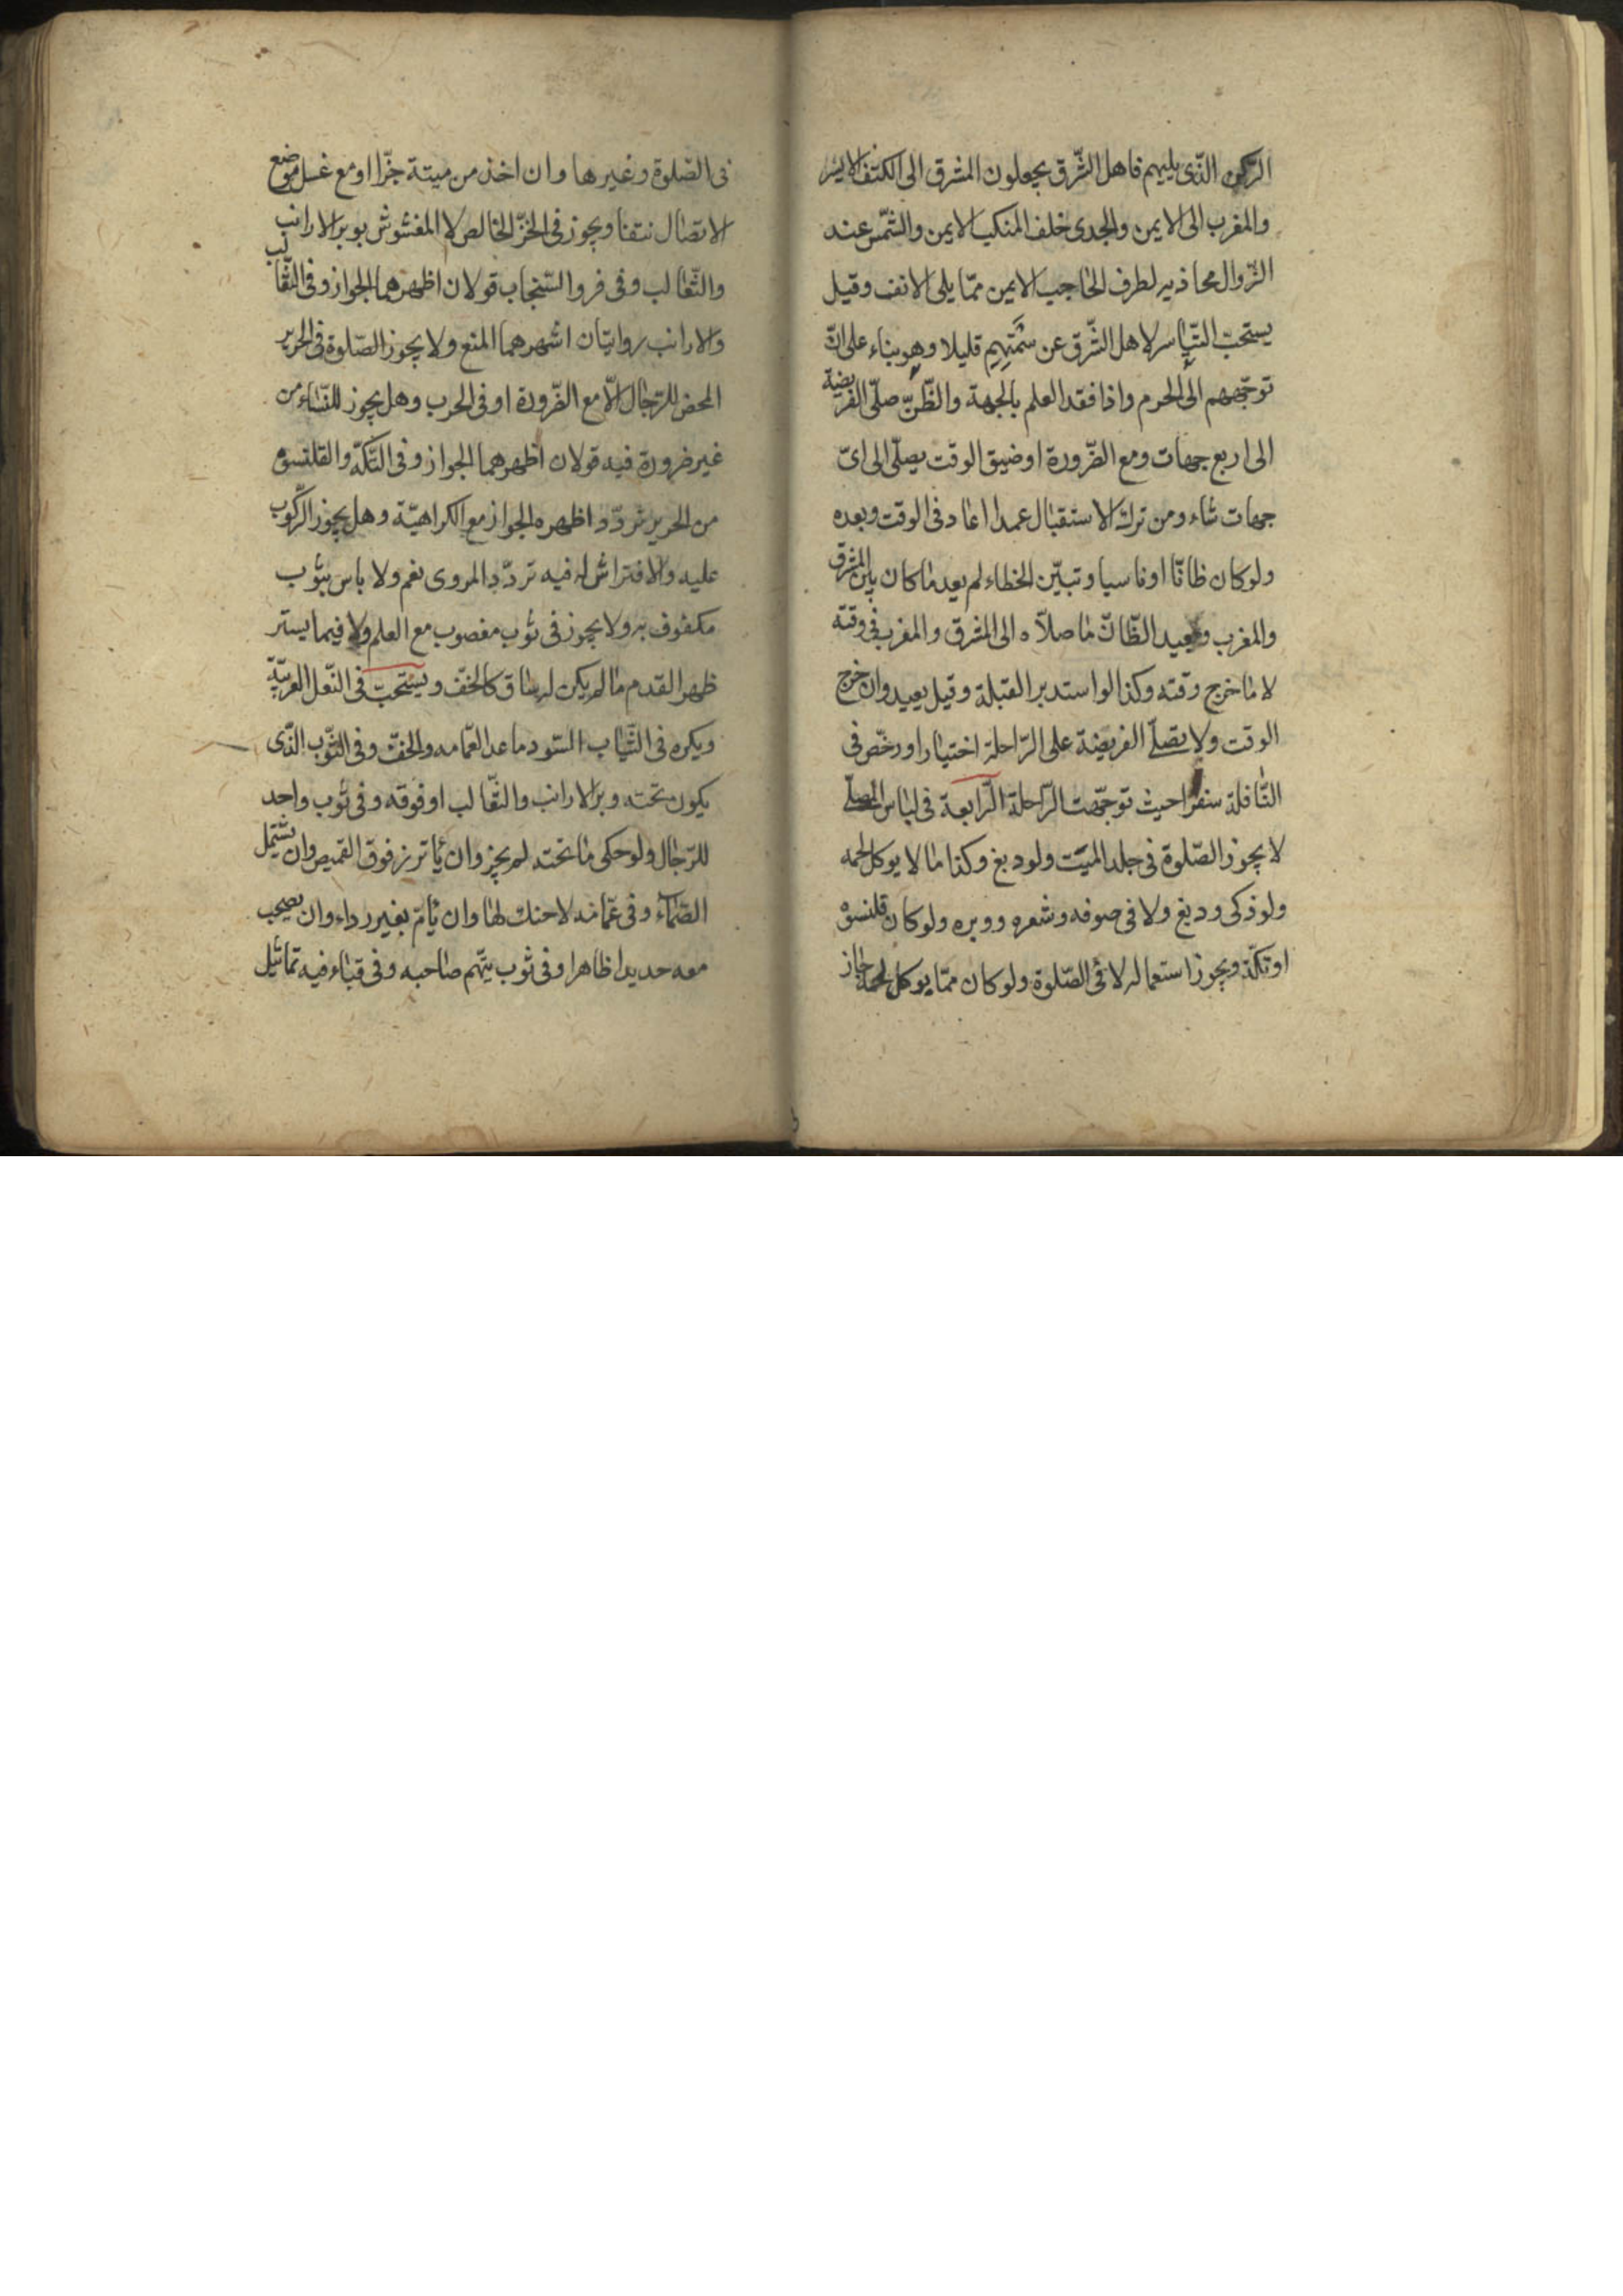 الركن الذى يليهم فاهل الشّرق يجعلون المشرق الى الكتف الايسر
والمغرب الى الايمن والجدى خلف المنكب الايمن والشّمس عند
الزّوال محاذيه لطرف الحاجب الايمن ممّا يلى الانف وقيل
يستحبّ التّياسر لاهل الشّرق عن سَمْتِهِم قليلا وهو بناء على انّ
توجّههم الى الحرم واذا فقد العلم بالجهة والظّنّ صلّى الفريضة
الى اربع جهات ومع الضّرورة او ضيق الوقت يصلّى الى اىّ
جهات شاء ومن ترك الاستقبال عمدا اعاد فى الوقت وبعده
ولو كان ظانّا او ناسيا وتبيّن الخطاء لم يعد ما كان بين المشرق
والمغرب ويعيد الظّانّ ما صلاّه الى المشرق والمغرب فى وقته
لا ما خرج وقته وكذا لو استدبر القبلة وقيل يعيد وان خرج
الوقت ولا يصلّى الفريضة على الرّاحلة اختيارا ورخّص فى
النّافلة سفرا حيث توجّهت الرّاحلة الرّابعة فى لباس المصلّى
لا يجوز الصّلوة فى جلد الميّت ولو دبغ وكذا ما لا يوكل لحمه
ولو ذكى ودبغ ولا فى صوفه وشعره ووبره ولو كان قلنسوه
او تكّة ويجوز استعماله لا فى الصّلوة ولو كان ممّا يوكل لحمه جاز
فى الصّلوة وغيرها وان اخذ من ميتة جزّا او مع غسل موضع
الاتصال نتفا ويجوز فى الخزّ الخالص لا المغشوش بوبر الارانب
والثّعالب وفى فرو السّنجاب قولان اظهرهما الجواز وفى الثّعالب
والارانب روايتان اشهرهما المنع ولا يجوز الصّلوة فى الحرير
المحض للرّجال الاّ مع الضّرورة او فى الحرب وهل يجوز للنّساء من
غير ضرورة فيه قولان اظهرهما الجواز وفى التّكّة والقلنسوه
من الحرير تردّد اظهره الجواز مع الكراهيّة وهل يجوز الرّكوب
عليه والافتراش له فيه تردّد المروى نعم ولا باس بثوب
مكفوف به ولا يجوز فى ثوب مغصوب مع العلم ولا فيما يستر
ظهر القدم ما لم يكن له ساق كالخفّ ويستحبّ فى النّعل العربيّة
ويكره فى الثّياب السّود ما عدا العمّامه والخفّ وفى الثّوب الذّى
يكون تحته وبر الارانب والثّعالب او فوقه وفى ثوب واحد
للرّجال ولو حكى ما تحته لم يجز وان ياتزر فوق القميص وان يشتمل
الصّمّاء وفى عمّامه لا حنك لها وان يأمّ بغير رداء وان يصحب
معه حديدا ظاهرا وفى ثوب يتّهم صاحبه وفى قباء فيه تماثيل